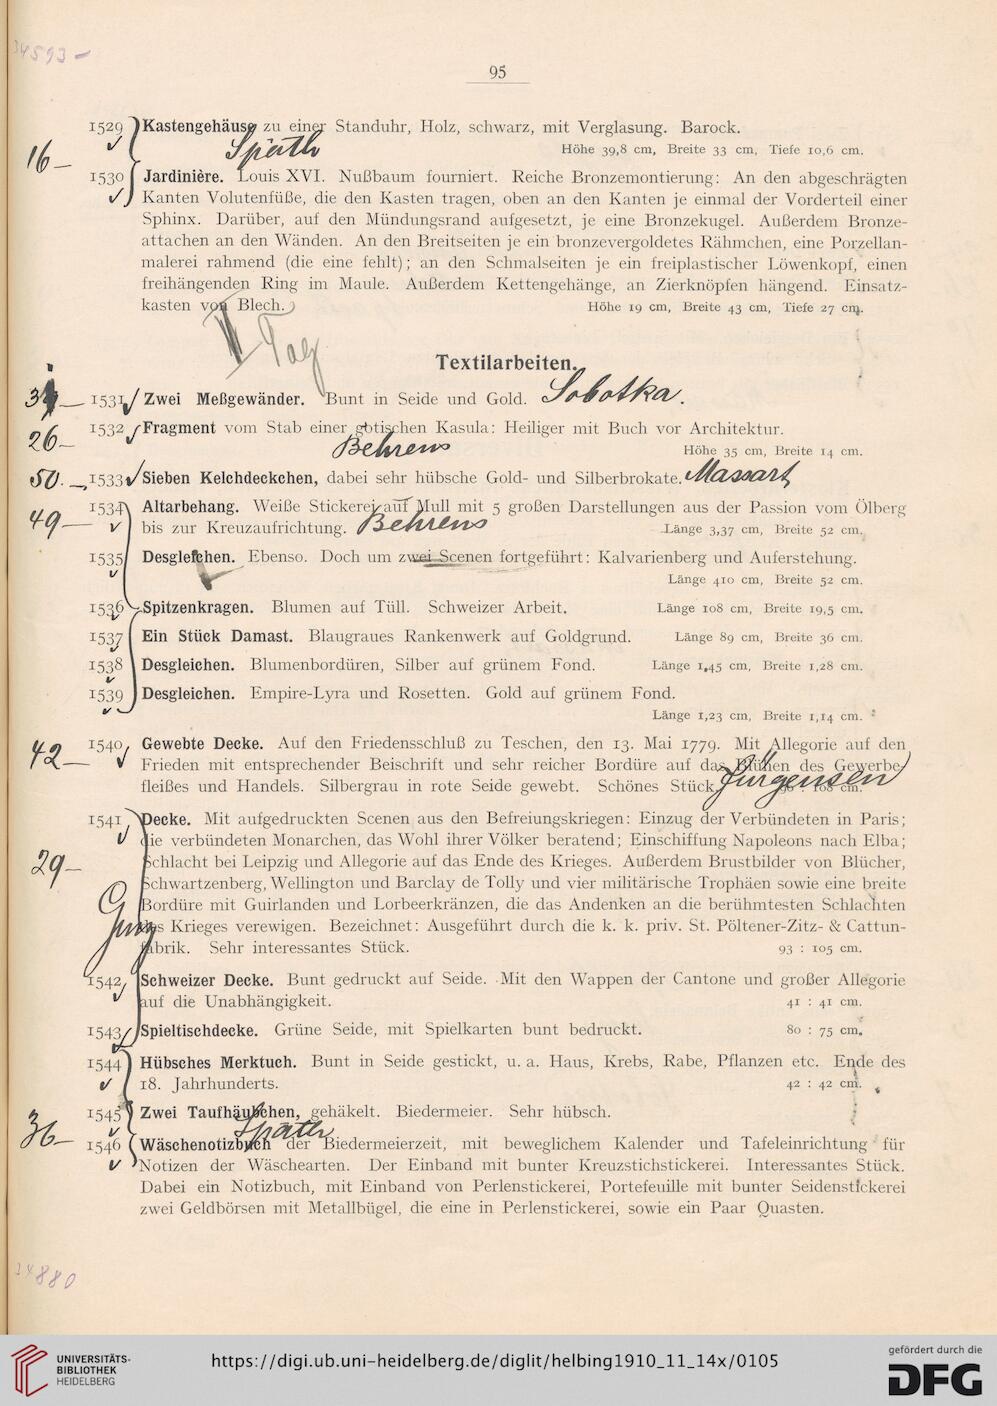 34593 –
95
1529 Kastengehäuse zu einer Standuhr, Holz, schwarz, mit Verglasung. Barock.
16 – Späth Höhe 39,8 cm, Breite 33 cm, Tiefe 10,6 cm.
1530 Jardinière. Louis XVI. Nußbaum fourniert. Reiche Bronzemontierung: An den abgeschrägten
Kanten Volutenfüße, die den Kasten tragen, oben an den Kanten je einmal der Vorderteil einer
Sphinx. Darüber, auf den Mündungsrand aufgesetzt, je eine Bronzekugel. Außerdem Bronze-
attachen an den Wänden. An den Breitseiten je ein bronzevergoldetes Rähmchen, eine Porzellan-
malerei rahmend (die eine fehlt); an den Schmalseiten je ein freiplastischer Löwenkopf, einen
freihängenden Ring im Maule. Außerdem Kettengehänge, an Zierknöpfen hängend. Einsatz-
kasten von Blech. Höhe 19 cm, Breite 43 cm, Tiefe 27 cm.
Tag
Textilarbeiten.
1531 Zwei Meßgewänder. Bunt in Seide und Gold. Sobotka.
1532 Fragment vom Stab einer gotischen Kasula: Heiliger mit Buch vor Architektur.
26 – Behrens Höhe 35 cm, Breite 14 cm.
50. – 1533 Sieben Kelchdeckchen, dabei sehr hübsche Gold- und Silberbrokate. Massart
1534 Altarbehang. Weiße Stickerei auf Mull mit 5 großen Darstellungen aus der Passion vom Ölberg
49 – bis zur Kreuzaufrichtung. Behrens Länge 3,37 cm, Breite 52 cm.
1535 Desgleichen. Ebenso. Doch um zwei Scenen fortgeführt: Kalvarienberg und Auferstehung.
Länge 410 cm, Breite 52 cm.
1536 Spitzenkragen. Blumen auf Tüll. Schweizer Arbeit. Länge 108 cm, Breite 19,5 cm.
1537 Ein Stück Damast. Blaugraues Rankenwerk auf Goldgrund. Länge 89 cm, Breite 36 cm.
1538 Desgleichen. Blumenbordüren, Silber auf grünem Fond. Länge 1,45 cm, Breite 1,28 cm.
1539 Desgleichen. Empire-Lyra und Rosetten. Gold auf grünem Fond.
Länge 1,23 cm, Breite 1,14 cm.
1540 Gewebte Decke. Auf den Friedensschluß zu Teschen, den 13. Mai 1779. Mit Allegorie auf den
42 – Frieden mit entsprechender Beischrift und sehr reicher Bordüre auf das Blühen des Gewerbe-
fleißes und Handels. Silbergrau in rote Seide gewebt. Schönes Stück. Jürgensen : 108 cm.
1541 Decke. Mit aufgedruckten Scenen aus den Befreiungskriegen: Einzug der Verbündeten in Paris;
die verbündeten Monarchen, das Wohl ihrer Völker beratend; Einschiffung Napoleons nach Elba;
29 – Schlacht bei Leipzig und Allegorie auf das Ende des Krieges. Außerdem Brustbilder von Blücher,
Schwartzenberg, Wellington und Barclay de Tolly und vier militärische Trophäen sowie eine breite
Bordüre mit Guirlanden und Lorbeerkränzen, die das Andenken an die berühmtesten Schlachten
des Krieges verewigen. Bezeichnet: Ausgeführt durch die k. k. priv. St. Pöltener-Zitz- & Cattun-
fabrik. Sehr interessantes Stück. 93 : 105 cm.
1542 Schweizer Decke. Bunt gedruckt auf Seide. Mit den Wappen der Cantone und großer Allegorie
auf die Unabhängigkeit. 41 : 41 cm.
1543 Spieltischdecke. Grüne Seide, mit Spielkarten bunt bedruckt. 80 : 75 cm.
1544 Hübsches Merktuch. Bunt in Seide gestickt, u. a. Haus, Krebs, Rabe, Pflanzen etc. Ende des
18. Jahrhunderts. 42 : 42 cm.
1545 Zwei Taufhäubchen, gehäkelt. Biedermeier. Sehr hübsch.
36 – Später
1546 Wäschenotizbuch der Biedermeierzeit, mit beweglichem Kalender und Tafeleinrichtung für
Notizen der Wäschearten. Der Einband mit bunter Kreuzstichstickerei. Interessantes Stück.
Dabei ein Notizbuch, mit Einband von Perlenstickerei, Portefeuille mit bunter Seidenstickerei
zwei Geldbörsen mit Metallbügel, die eine in Perlenstickerei, sowie ein Paar Quasten.
34880
UNIVERSITÄTS-
BIBLIOTHEK
HEIDELBERG
https://digi.ub.uni-heidelberg.de/diglit/helbing1910_11_14x/0105
gefördert durch die
DFG